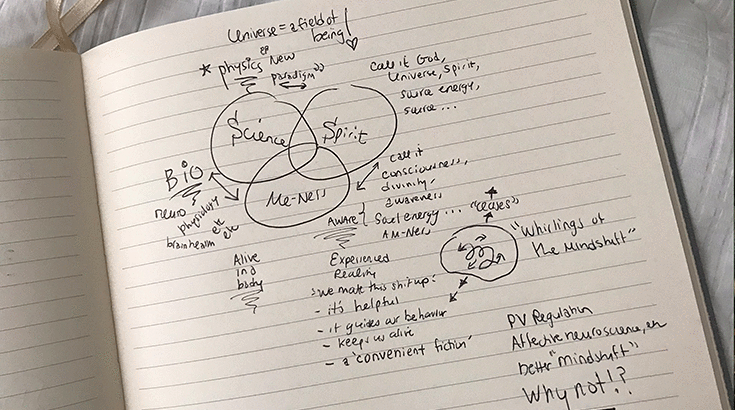 Universe = a field of
being!
* physics
"New
paradigm"
call it God,
Universe, Spirit,
source energy,
source ...
Science
Spirit
Me-Ness
BiO
neuro
physiology
etc
etc
brain health
call it
consciousness,
divinity,
awareness
Soul energy ...
AM-Ness
AWARE
"ceases"
"Whirlings of
the Mindshift"
Alive
in a
body
Experienced
Reality
we make this shit up!
- it's helpful
- it guides our behavior
- keeps us alive
- a 'convenient fiction'
PV Regulation
Affective neuroscience,
better "mindshift"
Why not!?